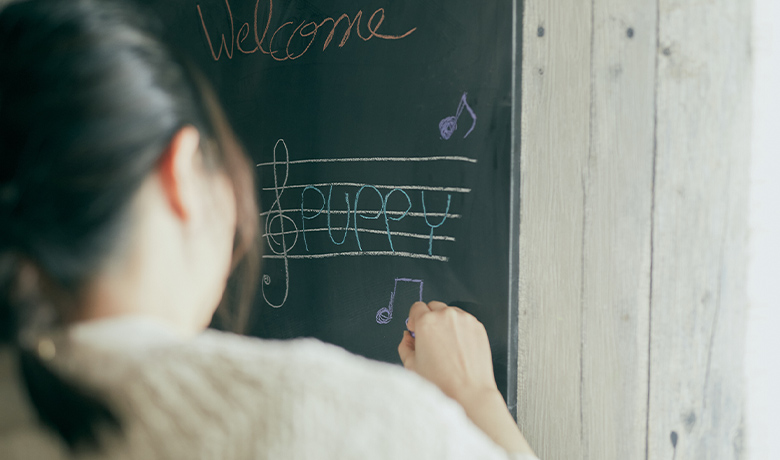 Welcome
PUPPY